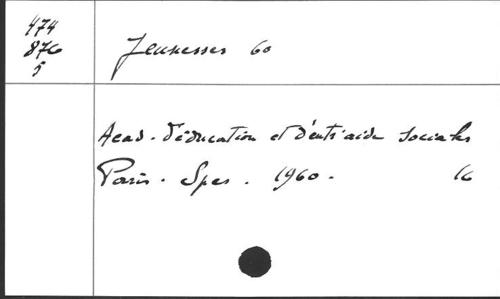 474
876
5
Jeunesses 60
Acad. d'éducation et d'entr'aide sociales
Paris. Spes. 1960. 16